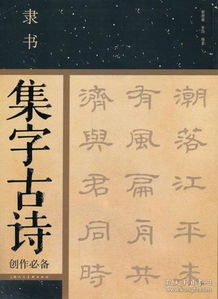 隶书
集字古诗
创作必备
潮落江平未
有風扁舟共
濟與君同時